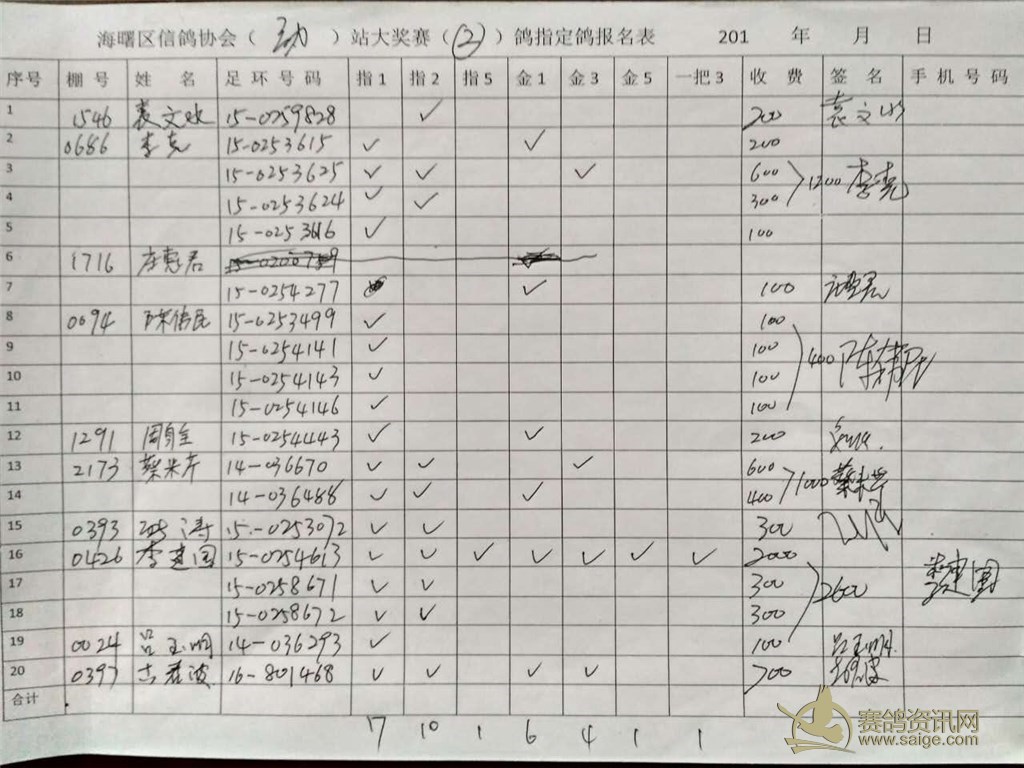 海曙区信鸽协会（ ）站大奖赛（②）鸽指定鸽报名表 201 年 月 日
序号 棚号 姓名 足环号码 指1 指2 指5 金1 金3 金5 一把3 收费 签名 手机号码
1 1546 袁文 15-0259828 ✓ 200 袁文
2 0686 李克 15-0253615 ✓ ✓ 200
3 15-0253625 ✓ ✓ ✓ 600 1200 李克
4 15-0253624 ✓ ✓ 300
5 15-0253616 ✓ 100
6 1716 君
7 15-0254277 ✓ 100
8 0694 陈伟民 15-0253499 ✓ 100
9 15-0254141 ✓ 100 400
10 15-0254143 ✓ 100
11 15-0254146 ✓ 100
12 1291 周 15-0254443 ✓ ✓ 200
13 2173 蔡米芹 14-036670 ✓ ✓ ✓ 600 1000
14 14-036488 ✓ ✓ ✓ 400
15 0393 涛 15-0253072 ✓ ✓ 300
16 0426 李建国 15-0254613 ✓ ✓ ✓ ✓ ✓ ✓ ✓ 2000
17 15-0258671 ✓ ✓ 300 2600 李建国
18 15-0258672 ✓ ✓ 300
19 0024 吕玉明 14-036293 ✓ 100 吕玉明
20 0397 波 16-801468 ✓ ✓ ✓ ✓ 700
合计
17 10 1 6 4 1 1
赛鸽资讯网
www.saige.com